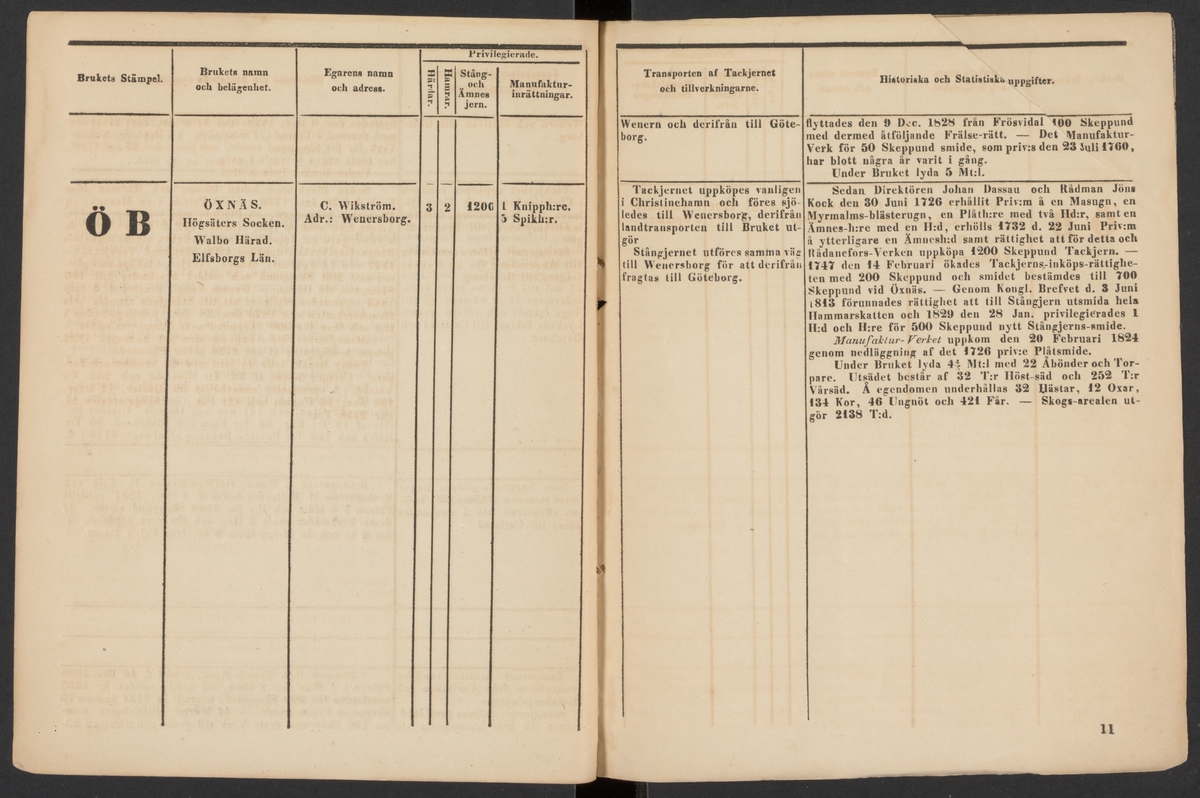 Brukets Stämpel.
Brukets namn
och belägenhet.
Egarens namn
och adress.
Privilegierade.
Härdar.
Hamrar.
Stång-
och
Ämnes
jern.
Manufaktur-
inrättningar.
Transporten af Tackjernet
och tillverkningarne.
Historiska och Statistiska uppgifter.
Wenern och derifrån till Göte-
borg.
flyttades den 9 Dec. 1828 från Frösvidal 100 Skeppund
med dermed åtföljande Frälse-rätt. — Det Manufaktur-
Verk för 50 Skeppund smide, som priv:s den 23 Juli 1760,
har blott några år varit i gång.
Under Bruket lyda 5 Mt:l.
Ö B
ÖXNÄS.
Högsäters Socken.
Walbo Härad.
Elfsborgs Län.
C. Wikström.
Adr.: Wenersborg.
3
2
1200
1 Knipph:re.
5 Spikh:r.
Tackjernet uppköpes vanligen
i Christinehamn och föres sjö-
ledes till Wenersborg, derifrån
landtransporten till Bruket ut-
gör
Stångjernet utföres samma väg
till Wenersborg för att derifrån
fragtas till Göteborg.
Sedan Direktören Johan Dassau och Rådman Jöns
Kock den 30 Juni 1726 erhållit Priv:m å en Masugn, en
Myrmalms-blästerugn, en Plåth:re med två Hd:r, samt en
Ämnes-h:re med en H:d, erhölls 1732 d. 22 Juni Priv:m
å ytterligare en Ämnesh:d samt rättighet att för detta och
Rådanefors-Verken uppköpa 1200 Skeppund Tackjern. —
1747 den 14 Februari ökades Tackjerns-inköps-rättighe-
ten med 200 Skeppund och smidet bestämdes till 700
Skeppund vid Öxnäs. — Genom Kongl. Brefvet d. 3 Juni
1813 förunnades rättighet att till Stångjern utsmida hela
Hammarskatten och 1829 den 28 Jan. privilegierades 1
H:d och H:re för 500 Skeppund nytt Stångjerns-smide.
Manufaktur-Verket uppkom den 20 Februari 1824
genom nedläggning af det 1726 priv:e Plåtsmide.
Under Bruket lyda Mt:l med 22 Åbönder och Tor-
pare. Utsädet består af 32 T:r Höst-säd och 252 T:r
Vårsäd. Å egendomen underhållas 32 Hästar, 12 Oxar,
134 Kor, 46 Ungnöt och 421 Får. — Skogs-arealen ut-
gör 2138 T:d.
11